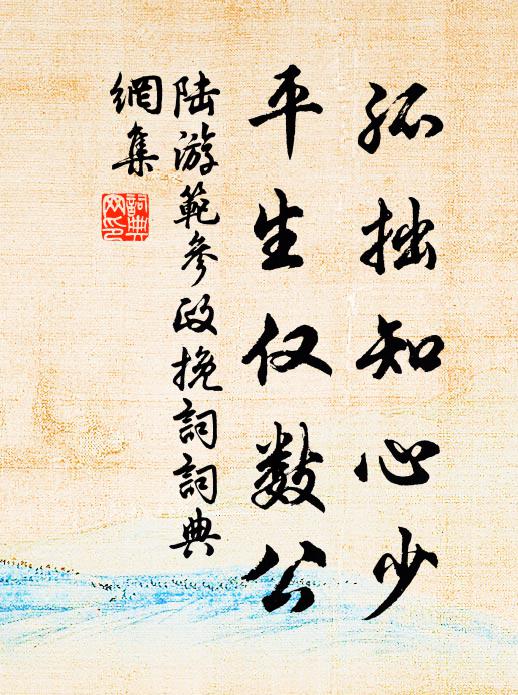 孤拙知心少
平生仅数公
陆游範参政挽詞詞典
網集
詞典
网印